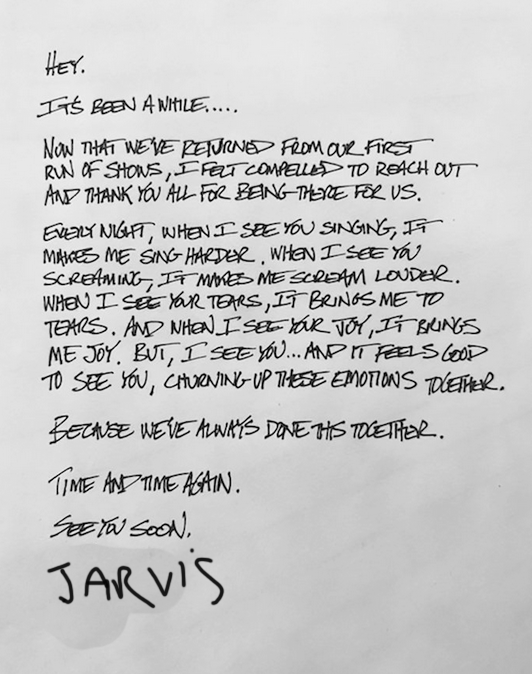 HEY.
IT'S BEEN A WHILE.....
NOW THAT WE'VE RETURNED FROM OUR FIRST
RUN OF SHOWS, I FELT COMPELLED TO REACH OUT
AND THANK YOU ALL FOR BEING THERE FOR US.
EVERY NIGHT, WHEN I SEE YOU SINGING, IT
MAKES ME SING HARDER. WHEN I SEE YOU
SCREAMING, IT MAKES ME SCREAM LOUDER.
WHEN I SEE YOUR TEARS, IT BRINGS ME TO
TEARS. AND WHEN I SEE YOUR JOY, IT BRINGS
ME JOY. BUT, I SEE YOU... AND IT FEELS GOOD
TO SEE YOU, CHURNING UP THESE EMOTIONS TOGETHER.
BECAUSE WE'VE ALWAYS DONE THIS TOGETHER.
TIME AND TIME AGAIN.
SEE YOU SOON.
JARVIS